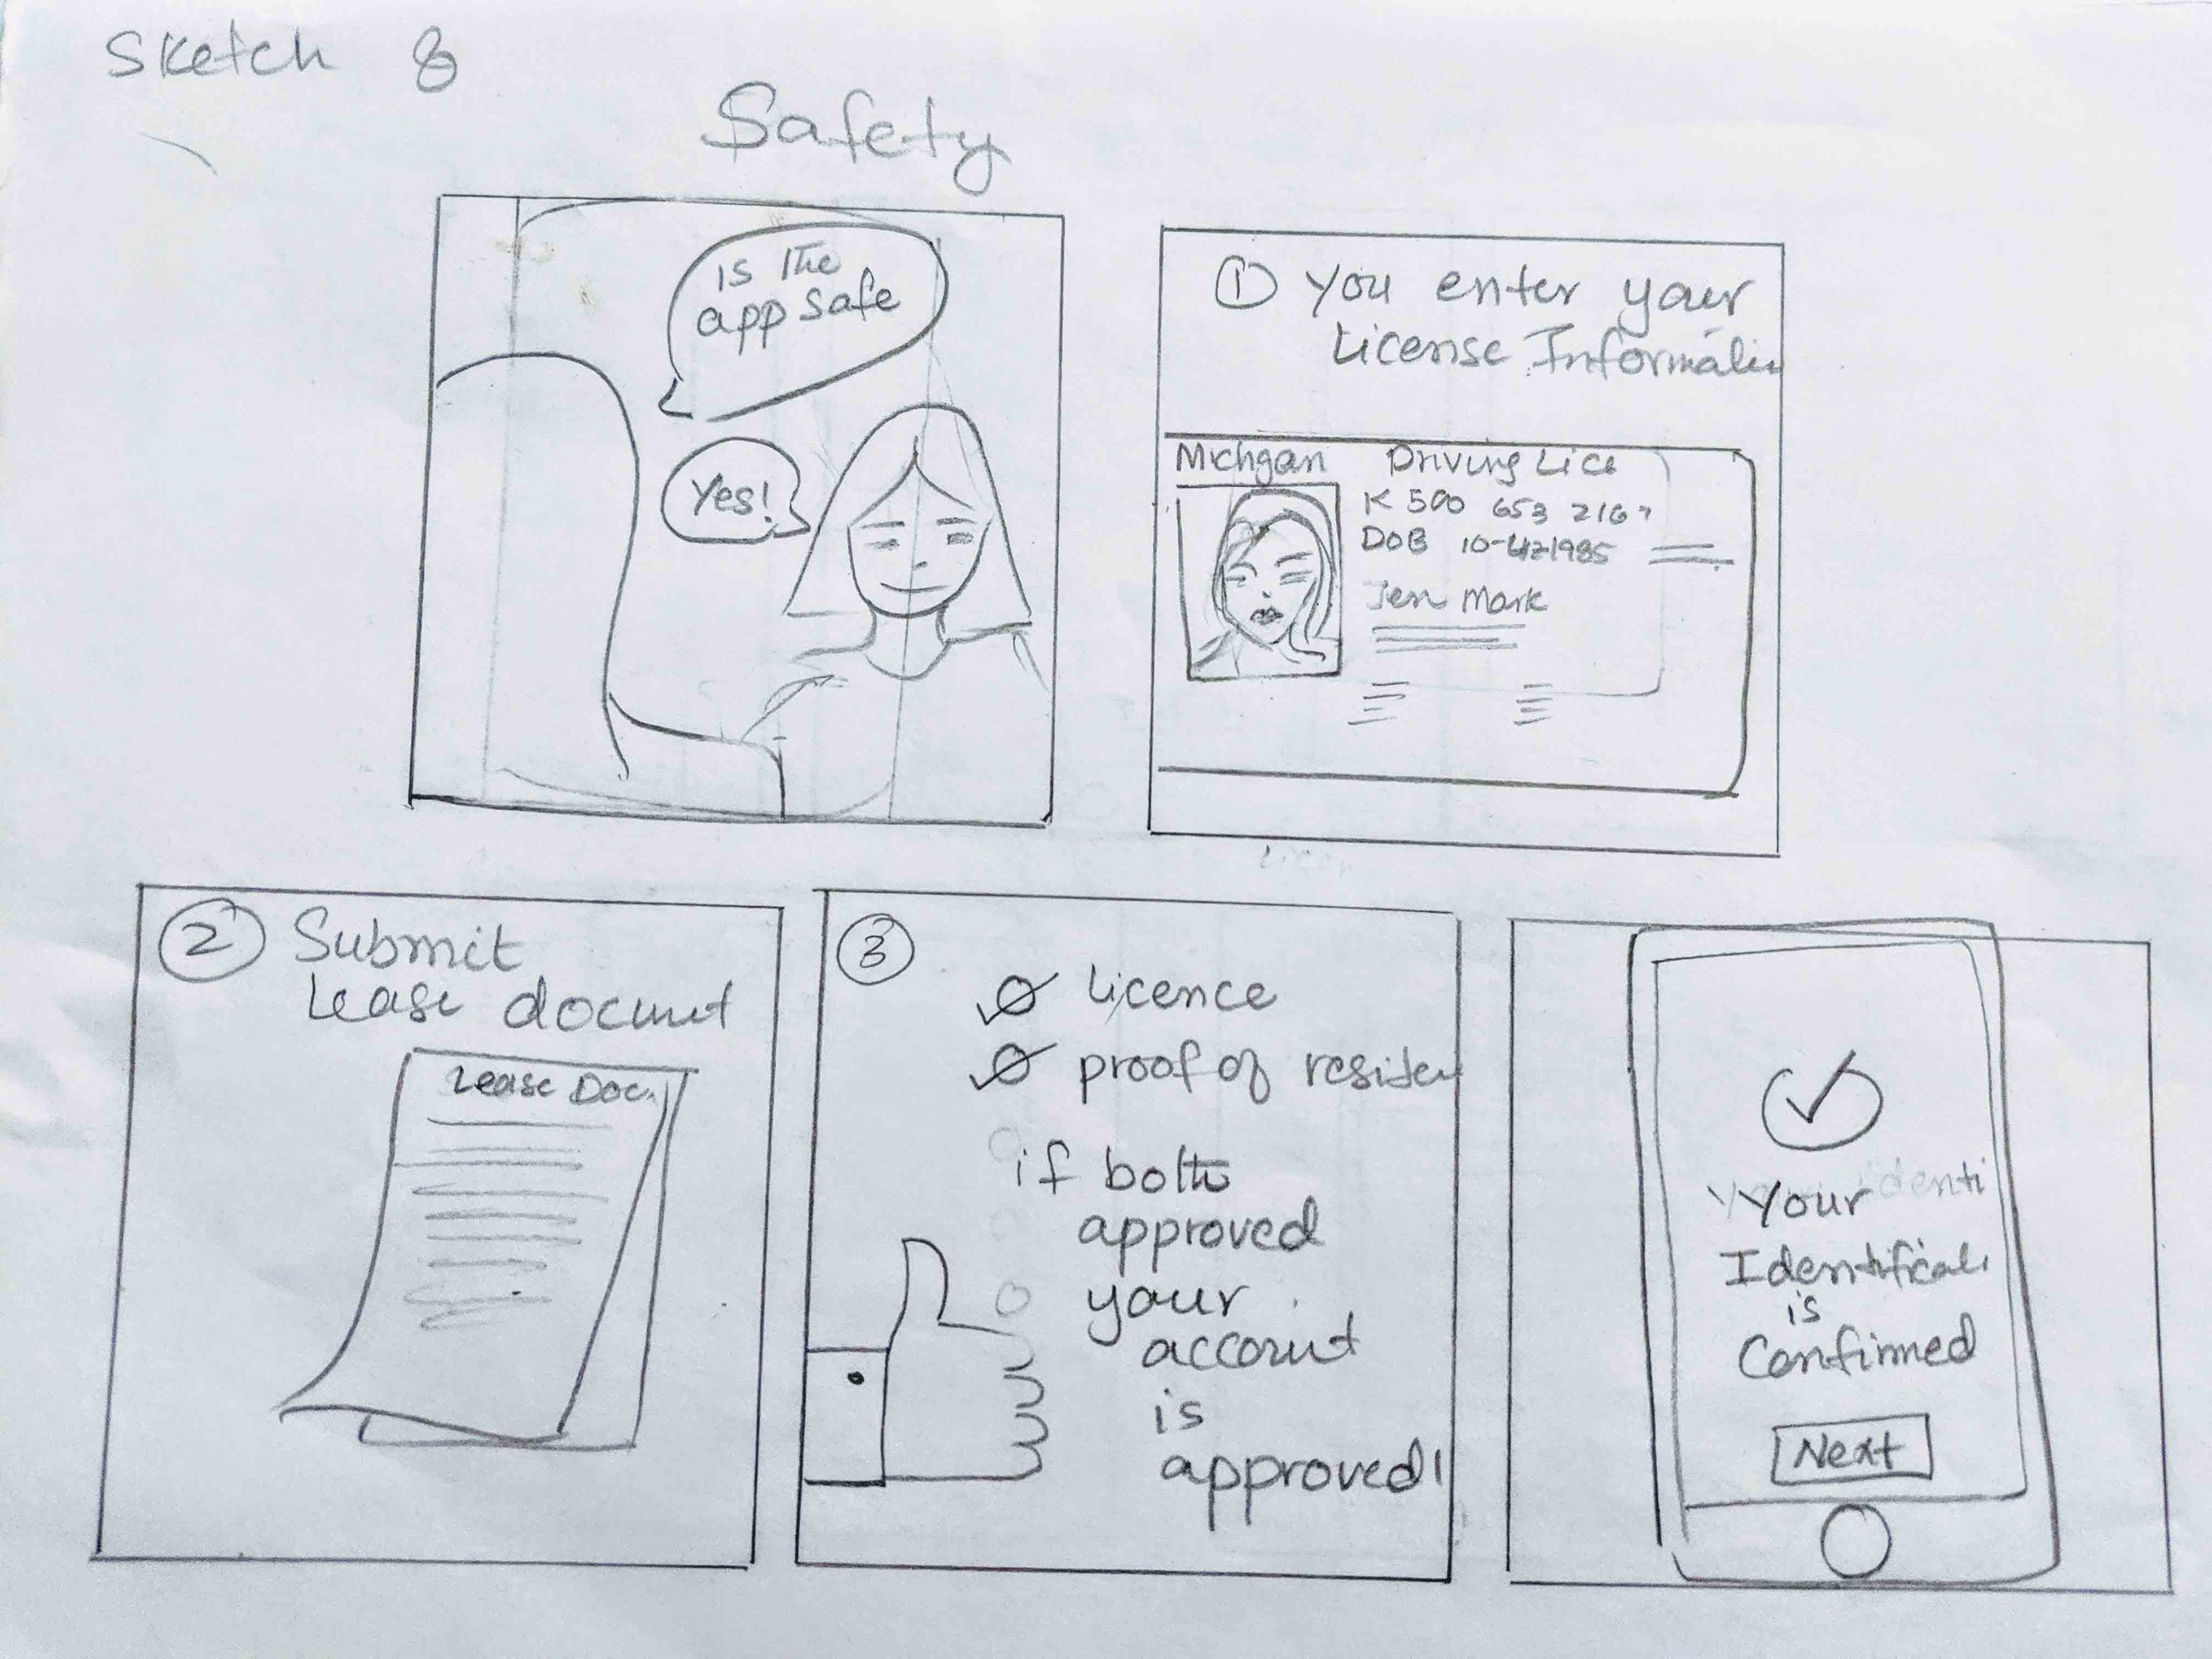 Sketch 8
Safety
is The
app safe
Yes!
① You enter your
License Informati
Michgan Driving Lice
K 500 653 216
DOB 10-1985
Jen Mark
② Submit
Lease documt
Lease Doc.
③
Licence
proof of residen
if both
approved
your
account
is
approved!
Your
Identificati
is
Confirmed
Next